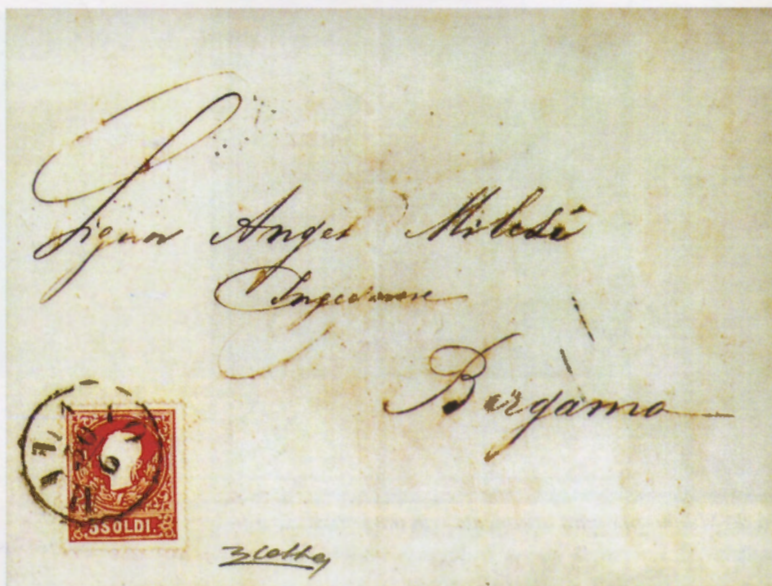 Signor Angel Milesi
Ingegnere
Bergamo
5 SOLDI.